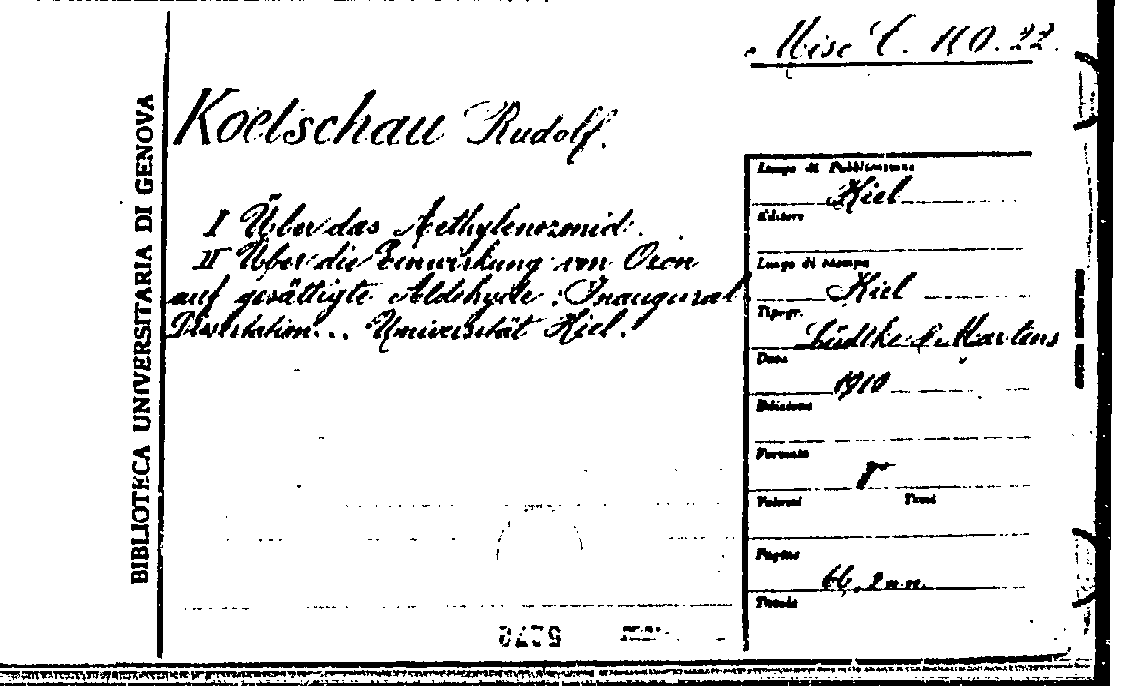 Misc C. 110.22.
BIBLIOTECA UNIVERSITARIA DI GENOVA
Koetschau Rudolf.
I Über das Aethylenozonid.
II Über die Einwirkung von Ozon
auf gesättigte Aldehyde: Inaugural
Dissertation... Universität Kiel.
Luogo di Pubblicazione
Kiel
Editore
Luogo di stampa
Kiel
Tipogr.
Lüdtke & Martens
Data
1910
Edizione
Formato
8°
Volumi Tomi
Pagine
66, 2 nn.